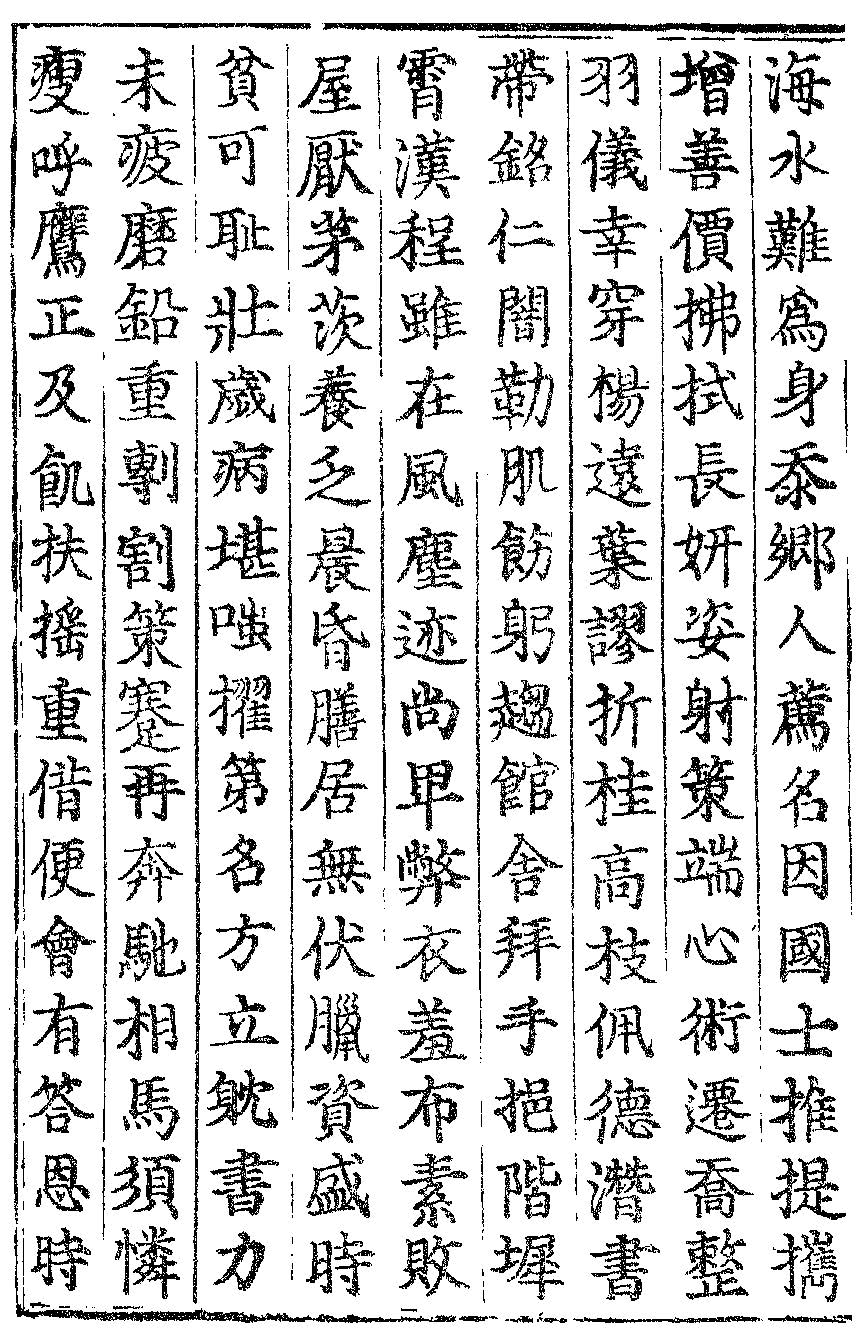 海水難爲身忝鄉人薦名因國士推提攜
增善價拂拭長妍姿射策端心術遷喬整
羽儀幸穿楊遠葉謬折桂高枝佩德潛書
帶銘仁闇勒肌飭躬趨館舍拜手挹階墀
霄漢程雖在風塵迹尚卑弊衣羞布素敗
屋厭茅茨養乏晨昏膳居無伏臘資盛時
貧可恥壯歲病堪嗤擢第名方立躭書力
未疲磨鉛重剸割策蹇再奔馳相馬須憐
瘦呼鷹正及飢扶搖重借便會有答恩時